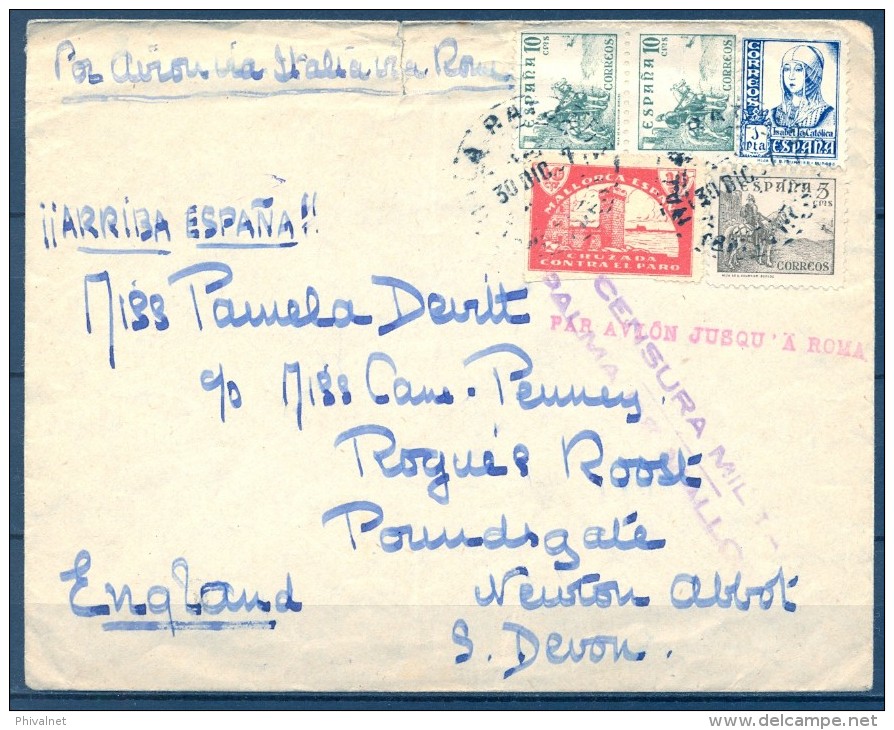 Por Avion via Italia via Roma
10 CTS
ESPAÑA
CORREOS
10 CTS
ESPAÑA
CORREOS
CORREOS
1 Pta
Isabel la Católica
ESPAÑA
30 DIC
30 DIC
MALLORCA
CRUZADA
CONTRA EL PARO
ESPAÑA 5
CTS
CORREOS
¡¡ARRIBA ESPAÑA!!
CENSURA MIL
PALMA
PAR AVION JUSQU'A ROMA
Miss Pamela Devitt
c/o Miss Cam-Penney.
Rogues Roost
Poundsgate
Newton Abbot
S. Devon.
England
Phivalnet
www.delcampe.net